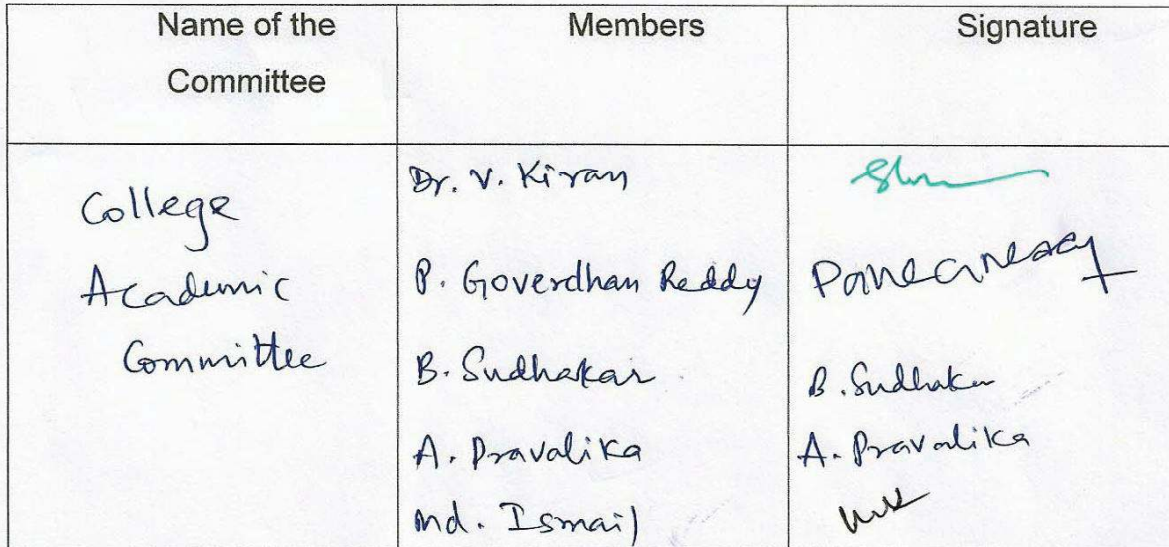 Name of the Committee
Members
Signature
College
Academic
Committee
Dr. V. Kiran
P. Goverdhan Reddy
B. Sudhakar
A. Pravalika
Md. Ismail
B. Sudhakar
A. Pravalika